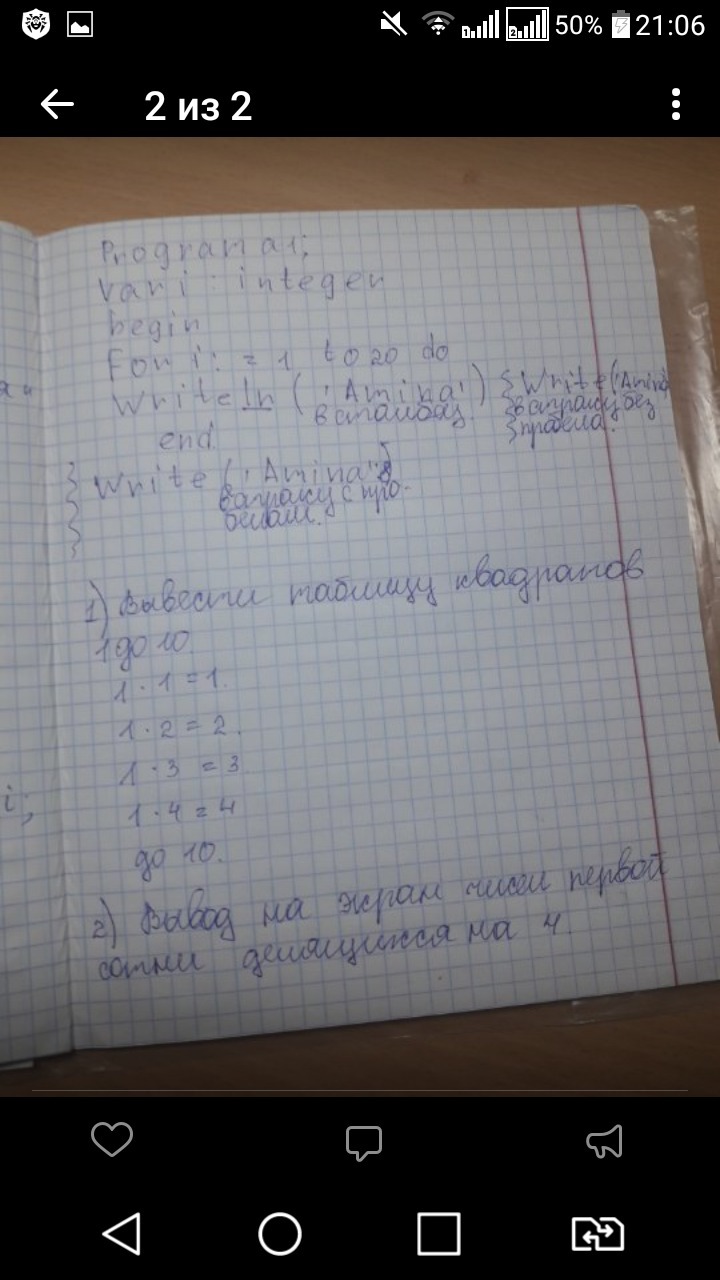 50% 21:06
2 из 2
Program a1;
var i : integer
begin
For i : = 1 to 20 do
Writeln ( 'Amina' ) { Write ('Amina
в столбец { в строку без
end { пробела.
{ Write ( 'Amina' )
в строку с про-
белом.
1) Вывести таблицу квадратов
1 до 10
1 · 1 = 1.
1 · 2 = 2.
1 · 3 = 3
1 · 4 = 4
до 10.
i;
2) Вывод на экран чисел первой
сотни делящихся на 4.